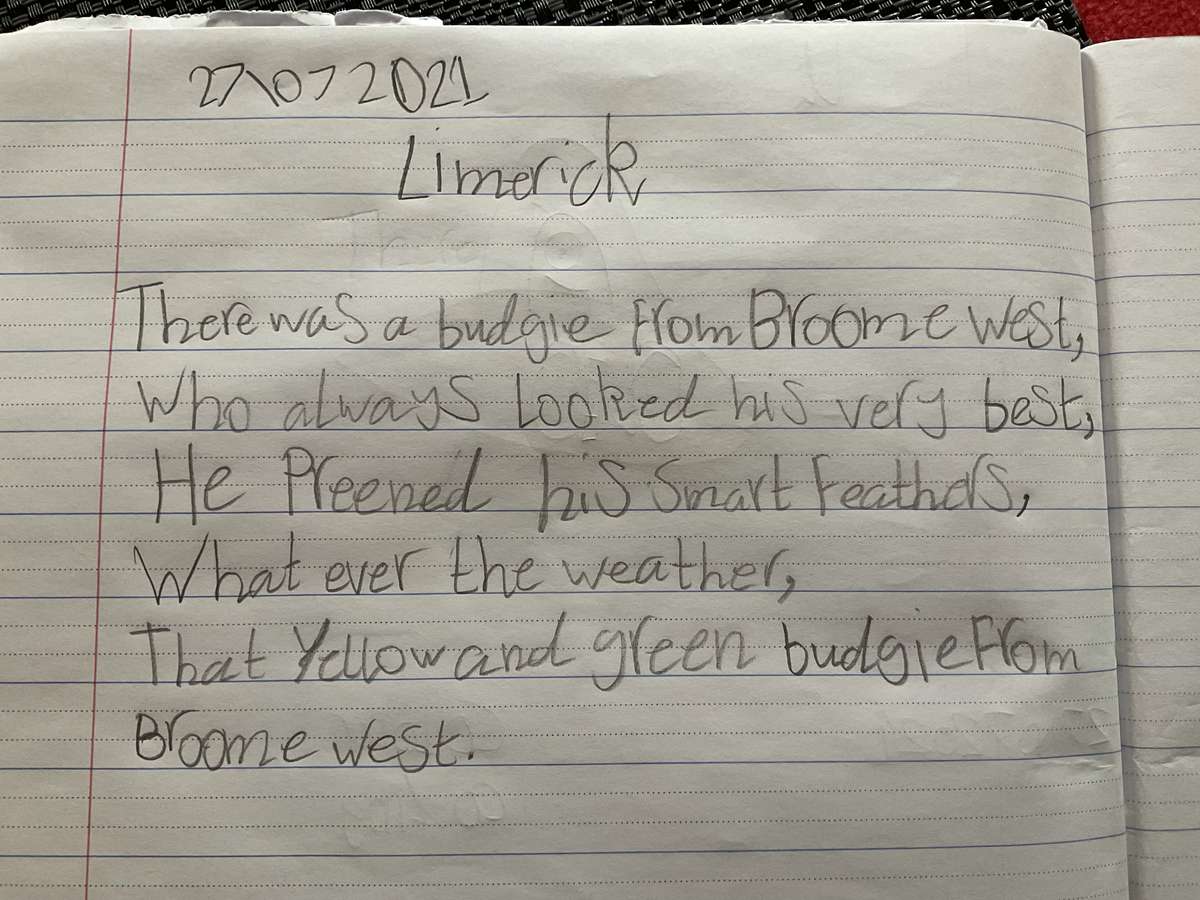 27\07 2021
Limerick
There was a budgie from Broome west,
Who always looked his very best,
He Preened his Smart Feathers,
What ever the weather,
That Yellow and green budgie From
Broome west.